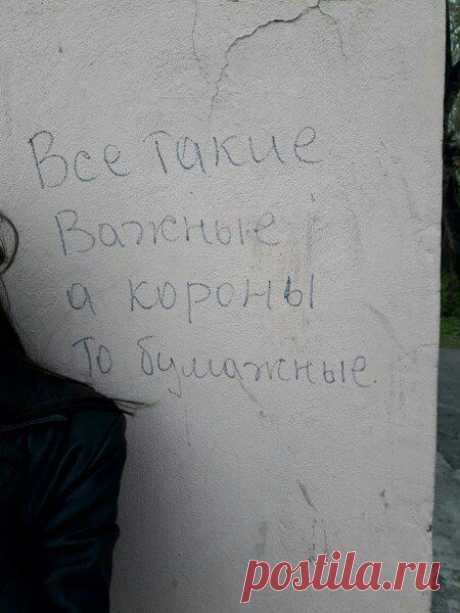 Все такие
Важные
а короны
то бумажные.
postila.ru